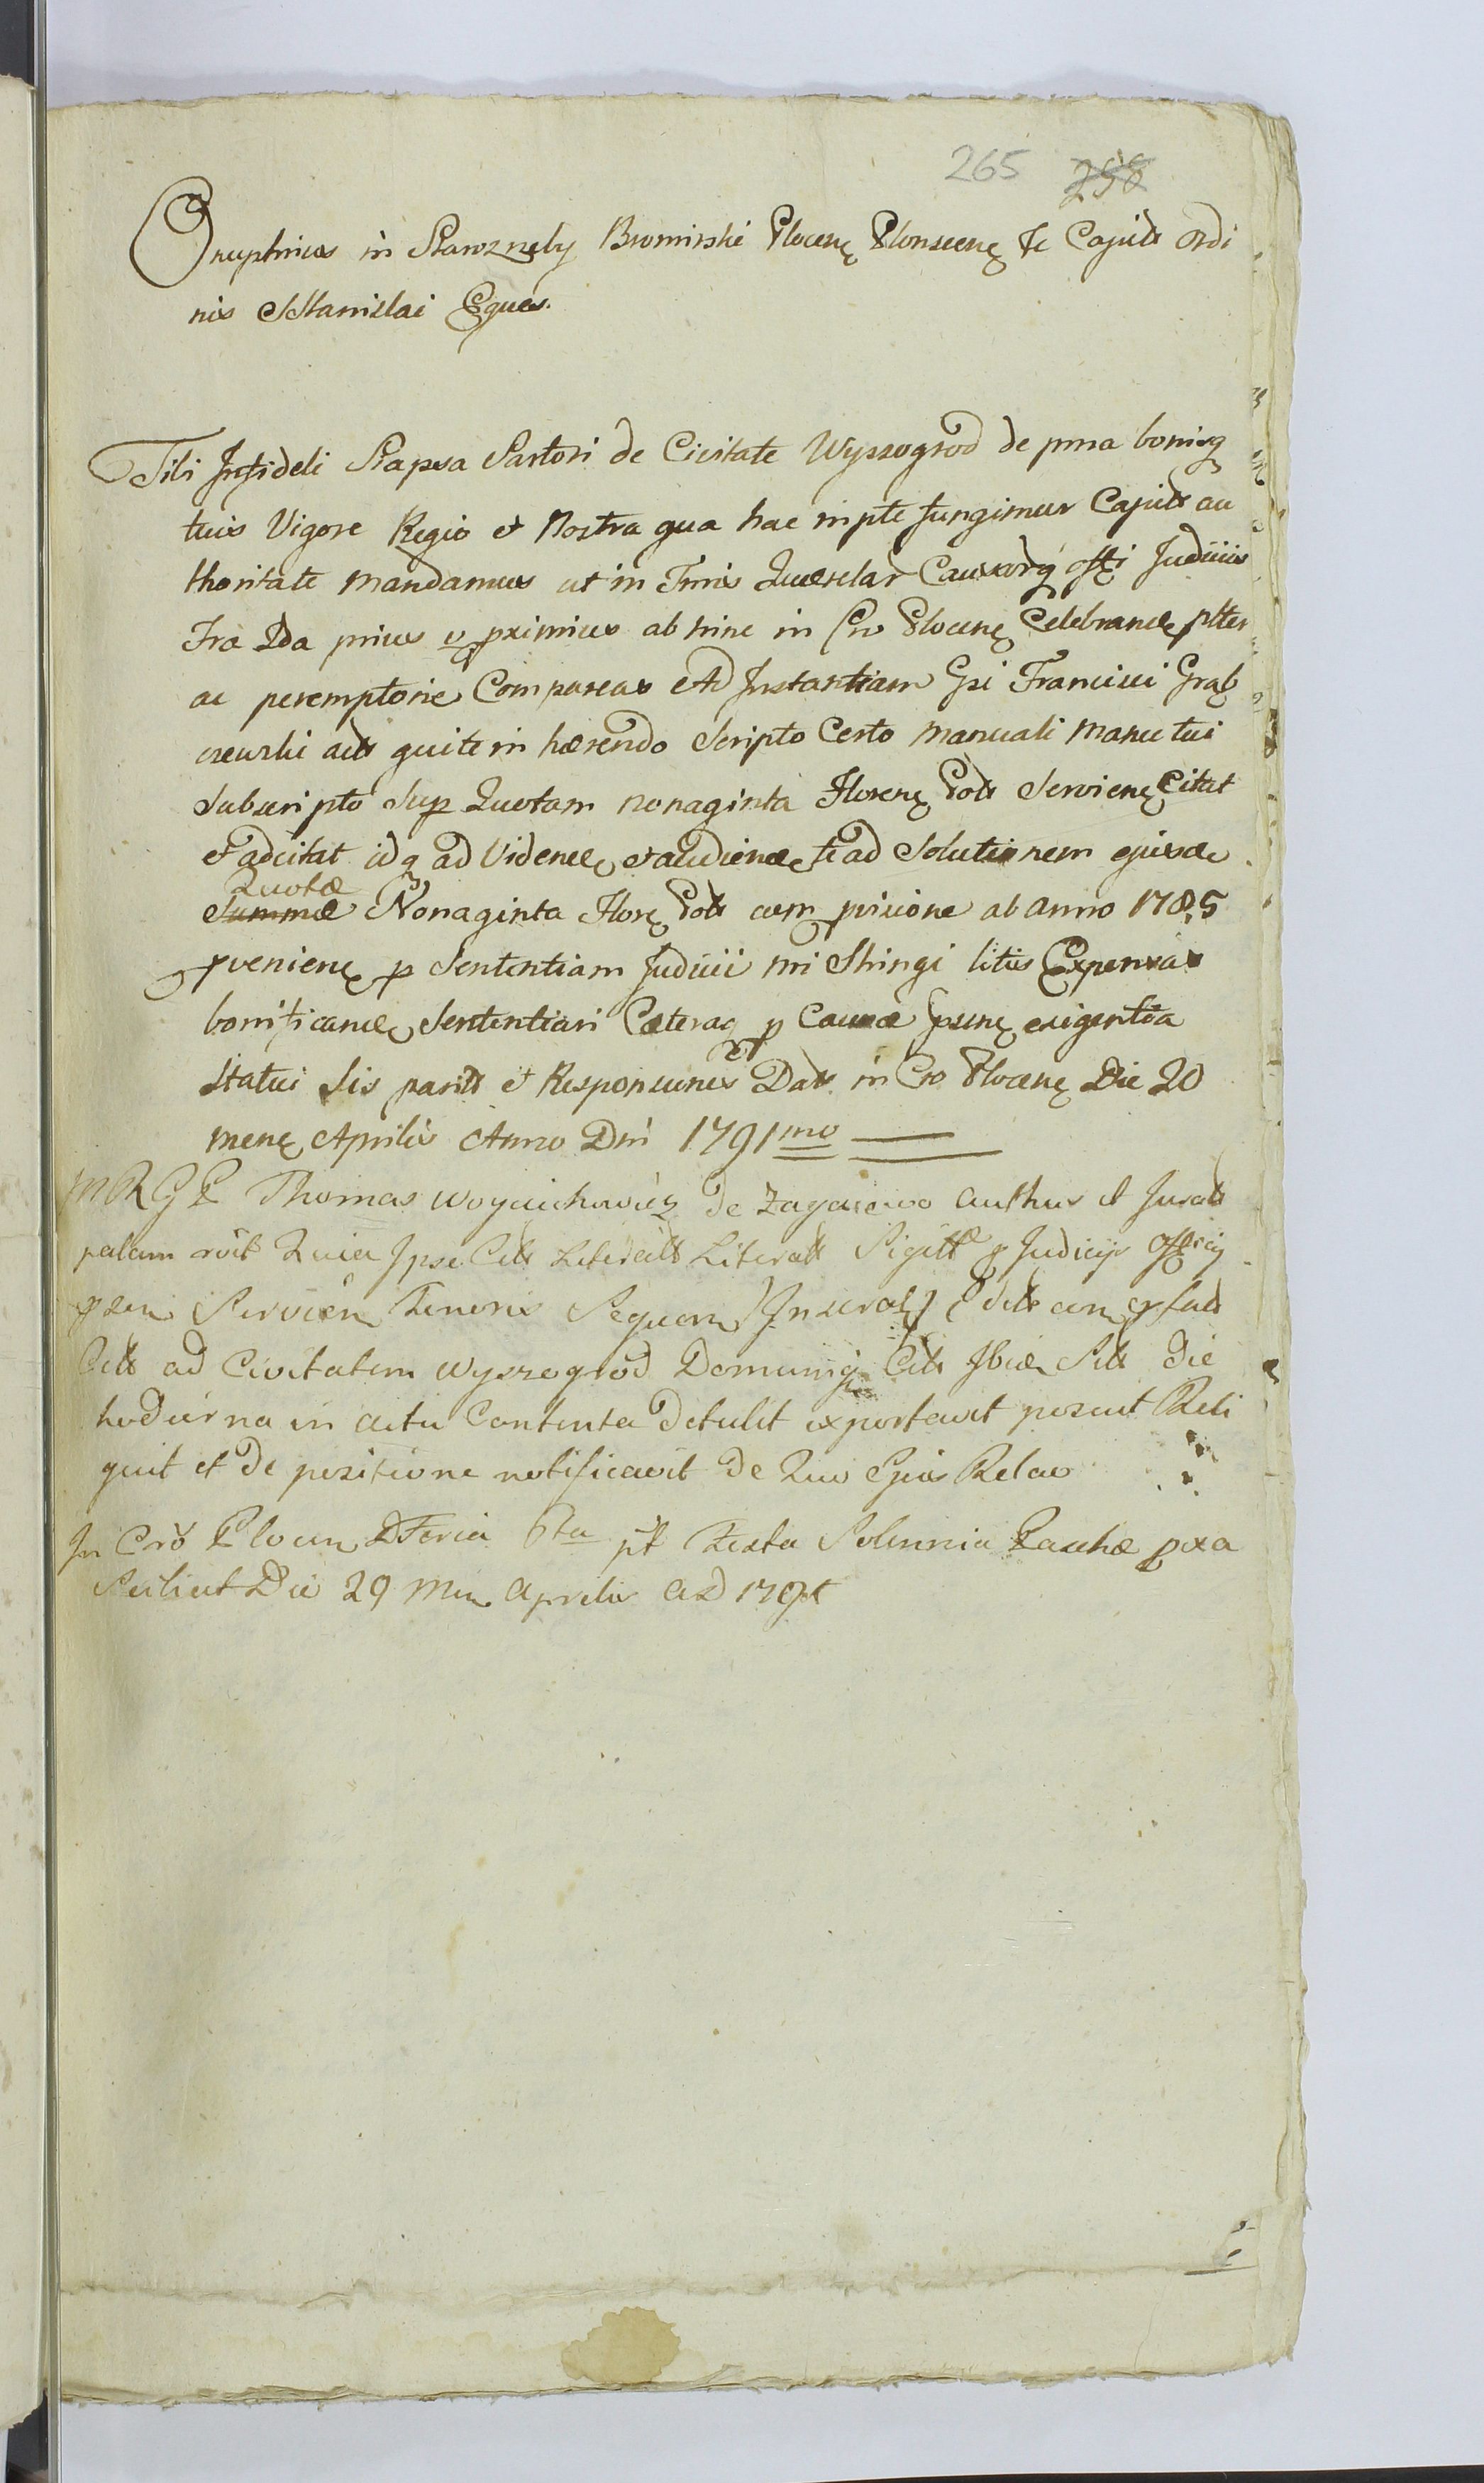 265 258
Onuphrius in Starozręby Bromirski Plocenę Plonscenę &c Capits Ordi
nis S Stanislai Eques.
Tibi Infideli Sartori de Civitate Wyszogrod de pma bonisq
tuis Vigore Regio et Nostra qua hac in pte fungimur Capits au
thoritate Mandamus ut in Tmis Querelar Causarq offi Judiciis
Fra 2da prius v pximius ab hinc in Cro Plocenę Celebrande pltter
ac peremptorie Compareas Ad Instantiam Gsi Francisci Grab
czewski acts qui te in hærendo Scripto Certo Manuali Manu tui
Subscripto Sup Quotam nonaginta Florenę Pols Servienę Citat
et adcitat idq ad Videnđ et audienđ te ad Solutionem ejusdę
Quotæ
Summæ Nonaginta Florę Pols cum pvisione ab anno 1785
pvenienę p Sententiam Judicii nri Stringi litis Expensas
bonificandę Sententiari Cæteraq p Causæ psenę exigentia
Statui Sis parits et Responsurus Dats in Cro Plocenę Die 20
menę Aprilis Anno Dni 1791mo
MRGP Thomas Woyciechowicz de Zagaiewo authus et Jurats
palam rcit Quia Ipse Cits Literats Sigill p Judicijs
psen Servien Tenoris Sequen
Cits ad Civitatem Wyszogrod Domumq Cits Ibid Sits die
hodierna in actu Contenta detulit exportavit posuit Reli
quit et de positione notificavit de Quo Ejus Relao
In Cro Plocen Feria 6ta pt Festa Solennia Paschæ pxa
Scilicet Die 29 Men Aprilis AD 1791